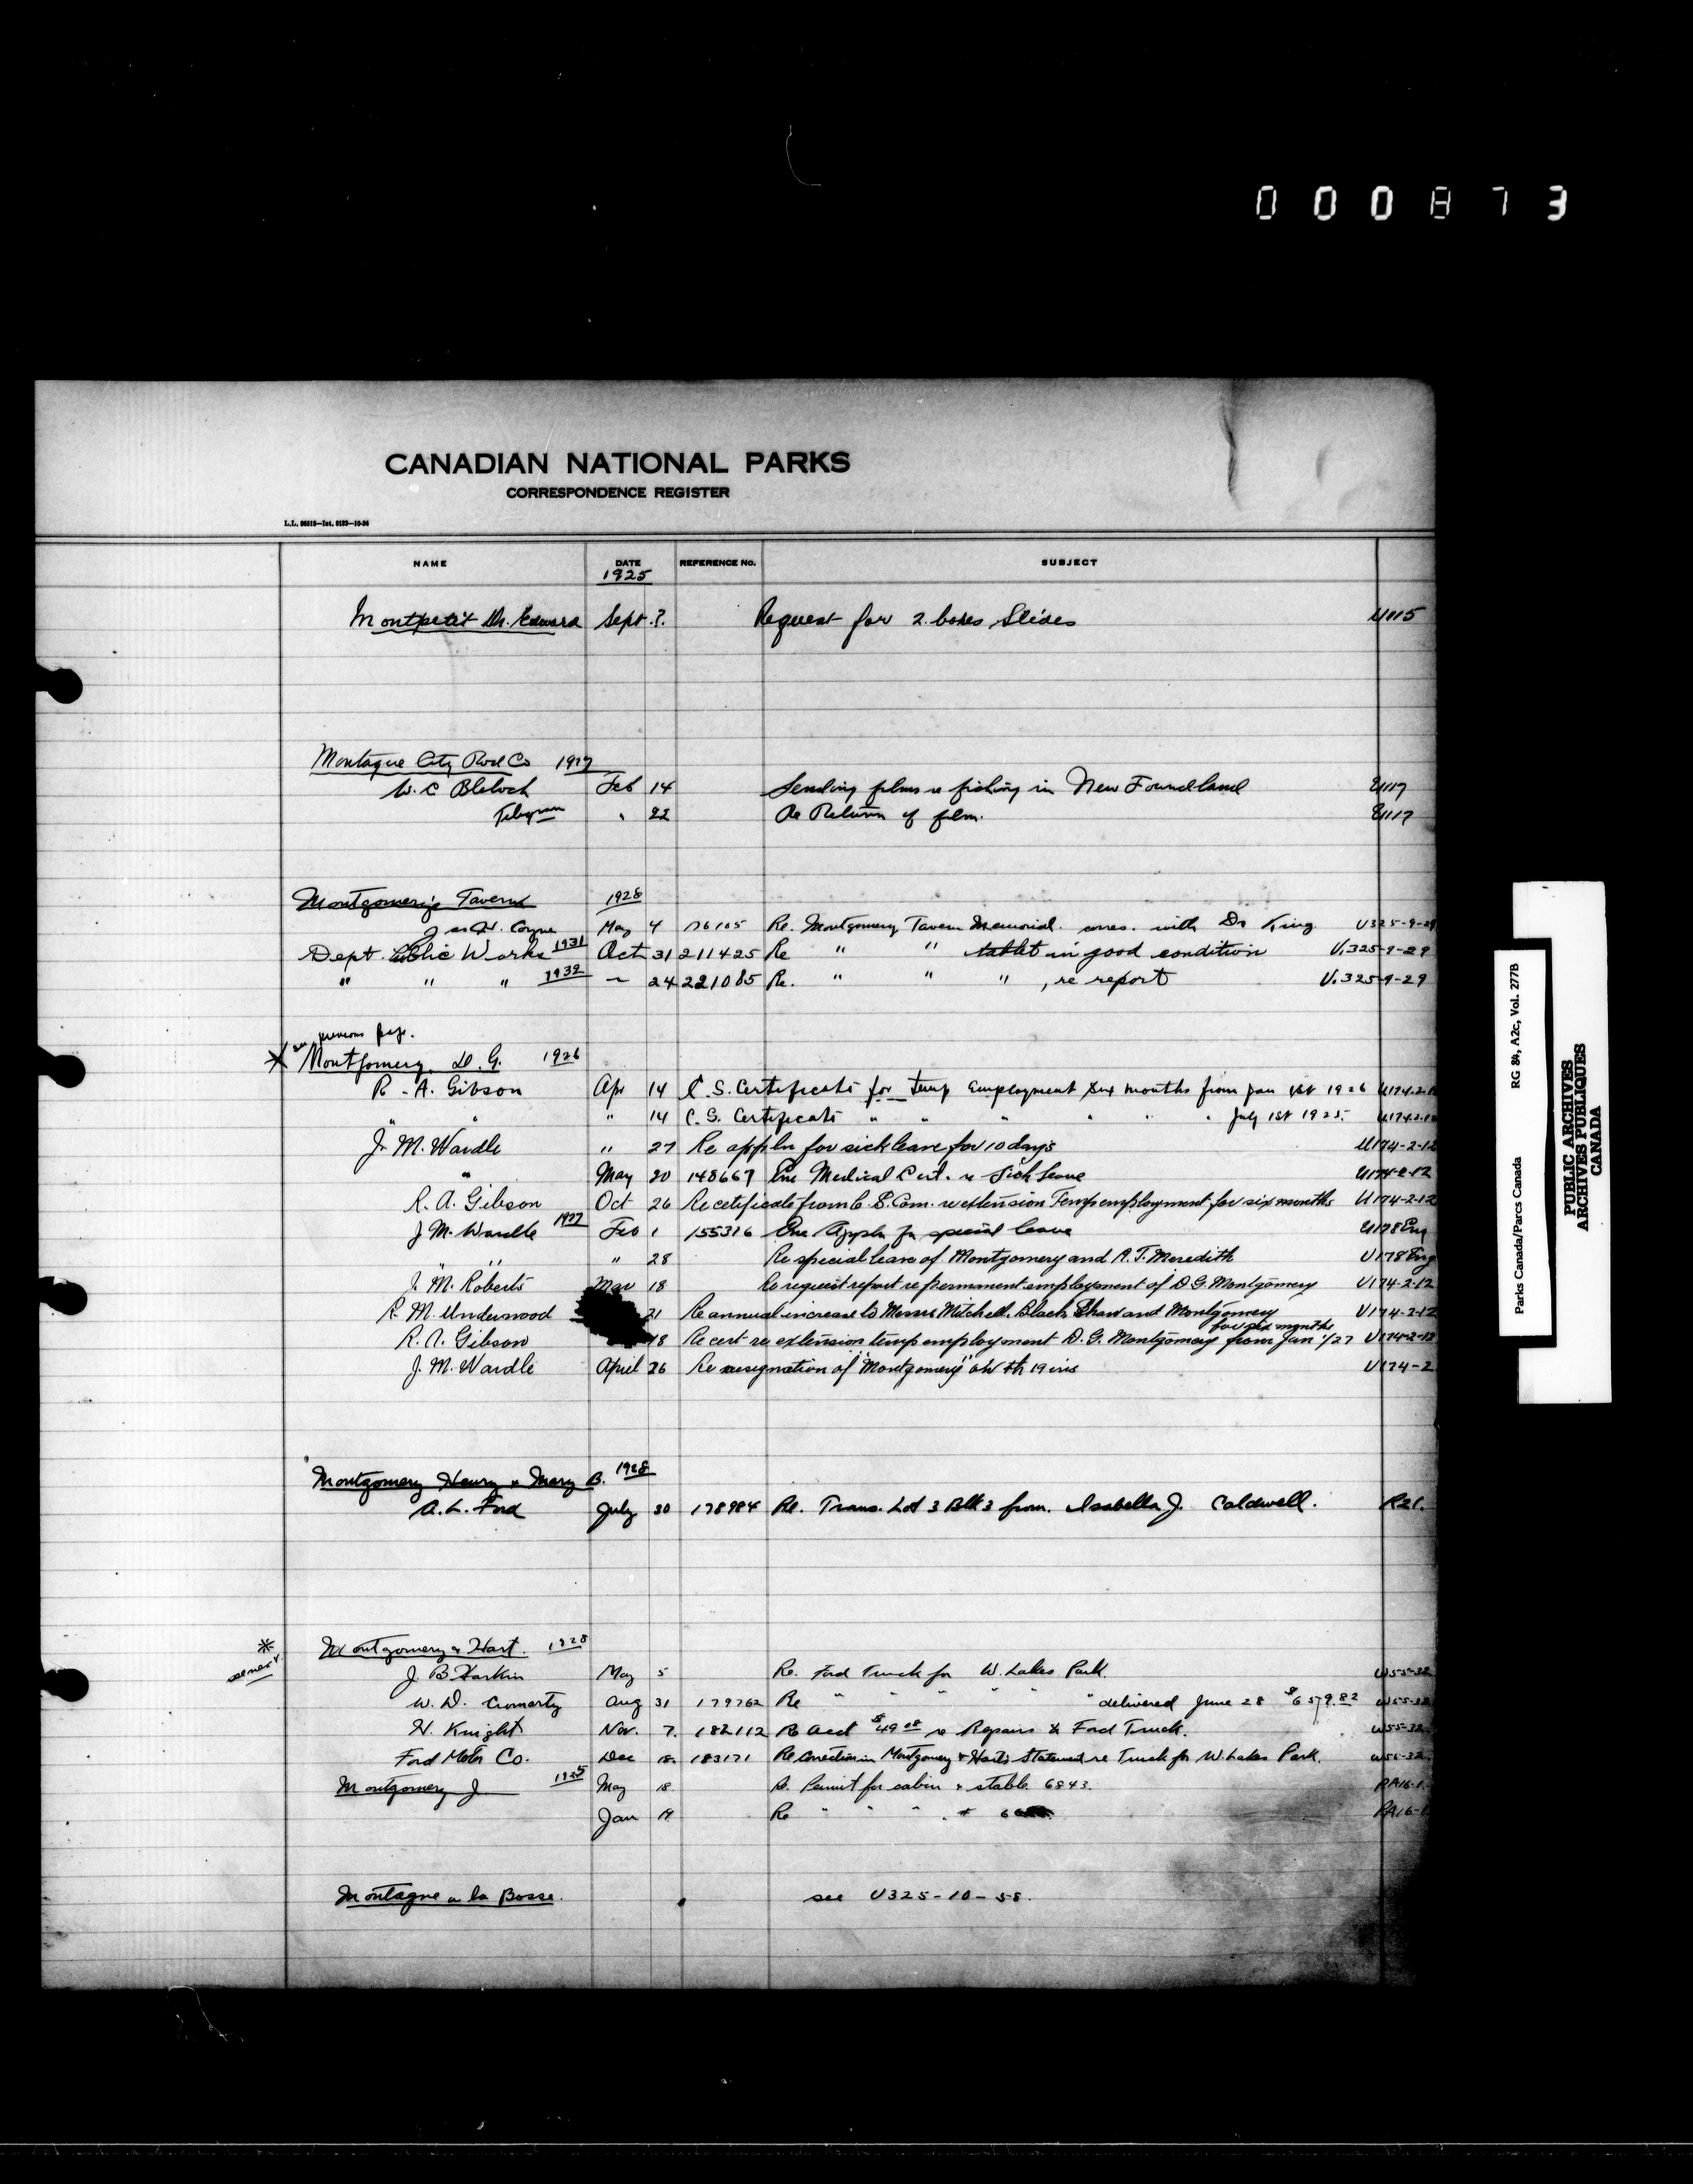 000873
CANADIAN NATIONAL PARKS
CORRESPONDENCE REGISTER
L.L. 86518—Int. 8133—10-24
NAME DATE REFERENCE No. SUBJECT
1925
Montpetit Dr. Edward Sept ? Request for 2 boxes Slides U115
Montague City Rod Co 1927
W. C Feb 14 Sending films re fishing in New Foundland U117
Telegram " 22 Re Return of film. U117
Montgomery's Tavern 1928
Jas H. Coyne May 4 Re. Montgomery Tavern Memorial. corres. with Dr King U325-9-29
Dept. Public Works 1931 Oct 31 211425 Re " " tablet in good condition U.325-9-29
" " " 1932 24 221085 Re. " " " , re report U.325-9-29
see previous page.
Montgomery, D. G. 1926
R. A. Gibson Apr 14 C. S. Certificate for Temp Employment six months from Jan 1st 1926 U174-2-12
" " " 14 C. S. Certificate " " " " " " July 1st 1925. U174-2-12
J. M. Wardle " 27 Re appln for sick leave for 10 days U174-2-12
" May 20 148667 Enc Medical Cert. re Sick Leave U174-2-12
R. A. Gibson Oct 26 Re certificate from C. S. Com. re extension Temp employment for six months U174-2-12
J. M. Wardle 1927 Feb 1 155316 Enc Appln for special leave U178 Eng
" " " 28 Re special leave of Montgomery and A. T. Meredith U178 Eng
J. M. Roberts Mar 18 Re request report re permanent employment of D G Montgomery U174-2-12
R. M. Underwood 21 Re annual increase to Messrs Mitchell, Black, Shaw and Montgomery U174-2-12
for six months
R. A. Gibson 18 Re cert re extension temp employment D. G. Montgomery from Jan 1/27 U174-2-12
J. M. Wardle April 26 Re resignation of "Montgomery" on th 19 ins U174-2
Montgomery Henry & Mary B. 1928
A. L. Ford July 30 178984 Re. Trans. Lot 3 Blk 3 from. Isabella J. Caldwell. R21.
Montgomery & Hart. 1928
J. B Harkin May 5 Re. Ford Truck for W. Lakes Park. W55-32
W. D. Cromarty Aug 31 179762 Re " " " " " " delivered June 28 W55-32
H. Knight Nov. 7. 182112 Re Acct $49.08 re Repairs to Ford Truck. W55-32
Ford Motor Co. Dec 18. 183171 Re Correction in Montgomery & Harts Statement re Truck for W. Lakes Park. W55-32
Montgomery J. 1925 May 18 Re. Permit for cabin & stable 6843. RA16-1.
Jan 19 Re " " " " RA16-1
Montagne a la Bosse. see U325-10-58.
Parks Canada/Parcs Canada RG 84, A2c, Vol. 277B
PUBLIC ARCHIVES
ARCHIVES PUBLIQUES
CANADA